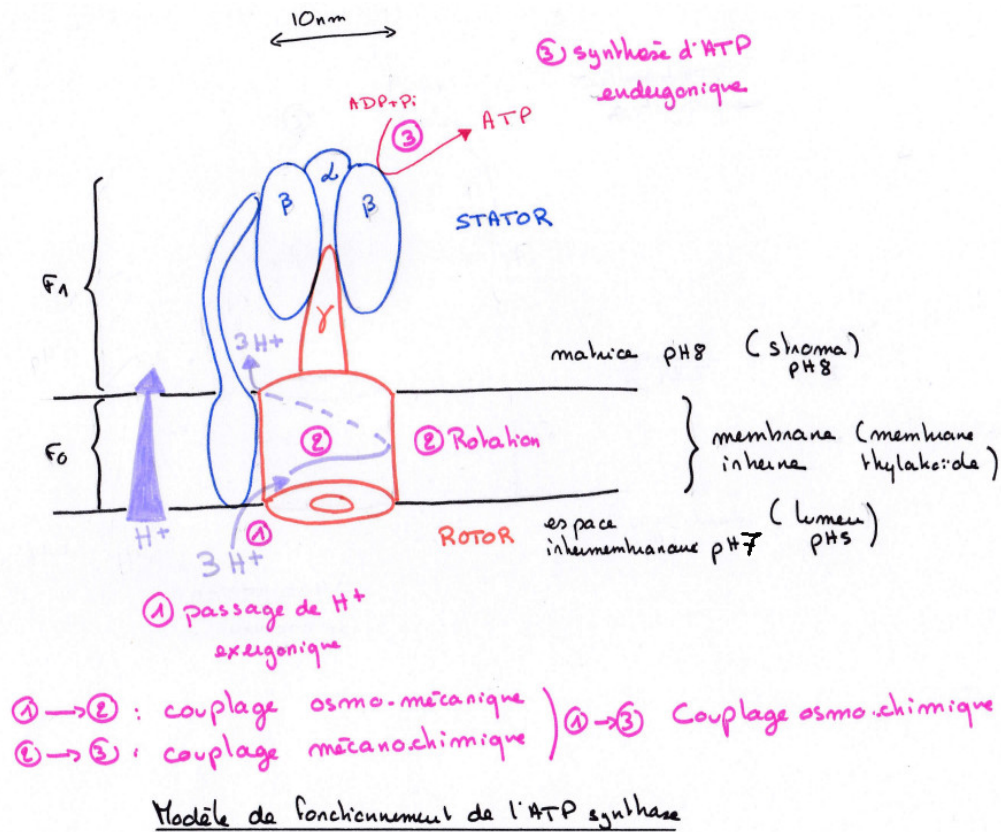 10nm
③ synthèse d'ATP
endergonique
ADP+Pi
ATP
③
α
β
β
STATOR
F1
γ
3H+
matrice pH8 (stroma)
pH8
F0
②
② Rotation
membrane (membrane
interne thylakoïde)
H+
3H+
①
ROTOR
espace (lumen
intermembranaire pH7 pH5)
① passage de H+
exergonique
① → ② : couplage osmo-mécanique
② → ③ : couplage mécanochimique
① → ③ Couplage osmo-chimique
Modèle de fonctionnement de l'ATP synthase